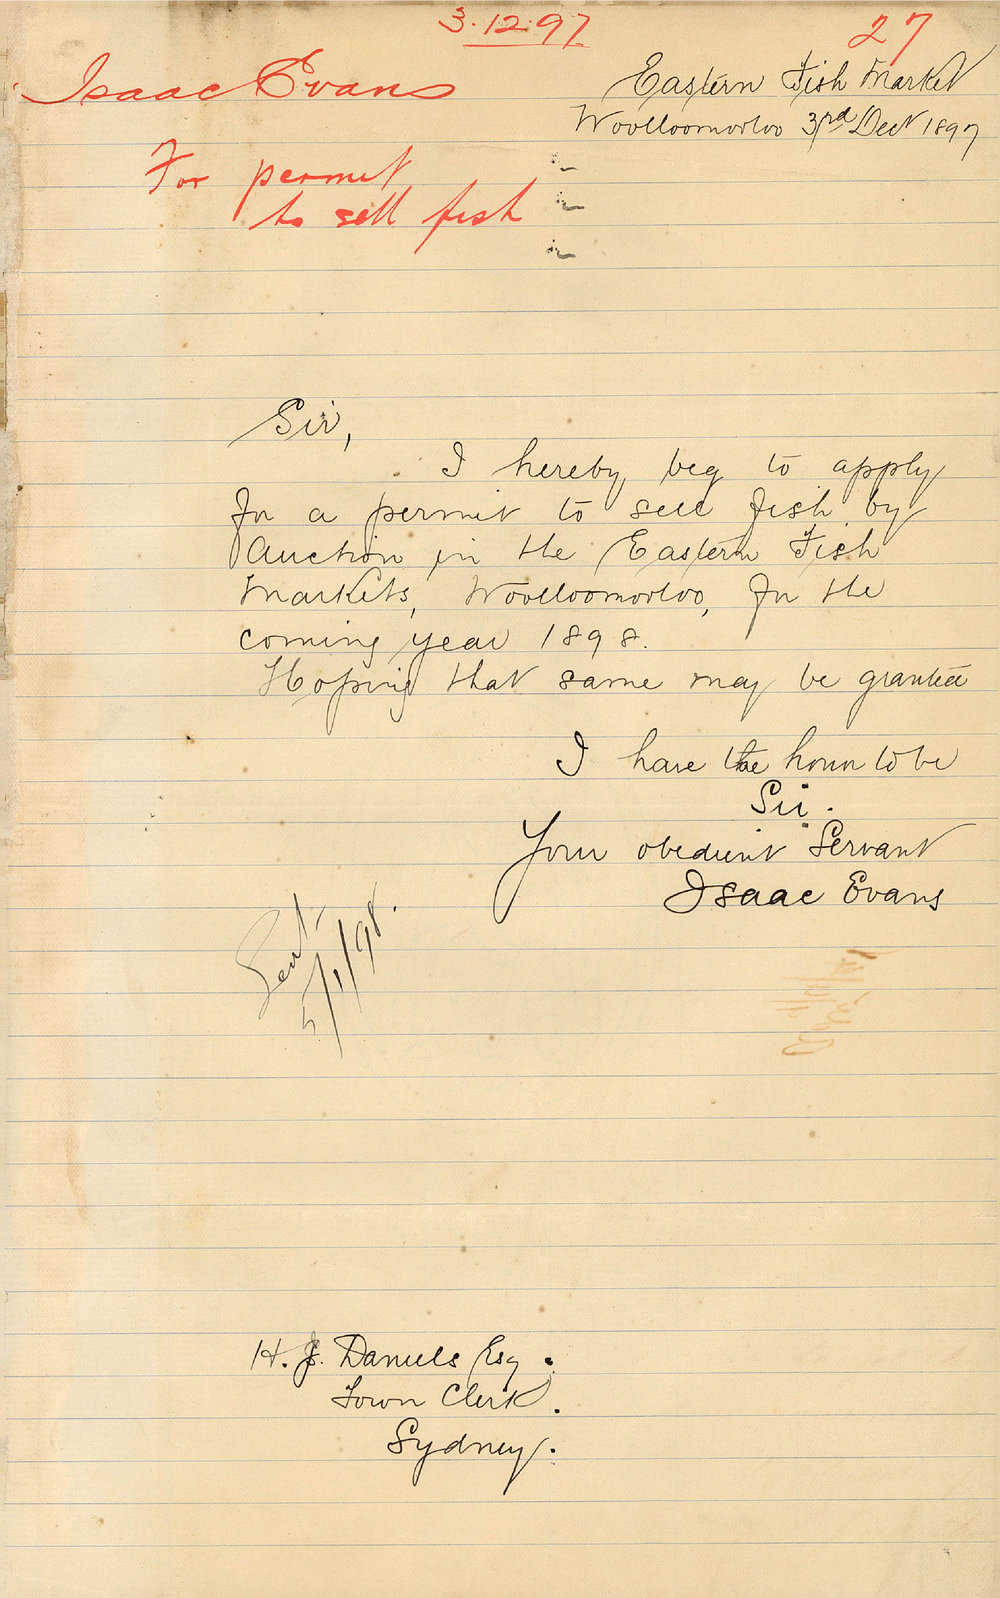 3.12.97
27
Isaac Evans
For permit
to sell fish
Eastern Fish Market
Woolloomooloo 3rd Dect 1897
Sir,
I hereby beg to apply
for a permit to sell fish by
Auction in the Eastern Fish
Markets, Woolloomooloo, for the
coming year 1898.
Hoping that same may be granted
I have the honor to be
Sir.
Your obedient Servant
Isaac Evans
5/1/98.
H. J. Daniels Esq.
Town Clerk.
Sydney.